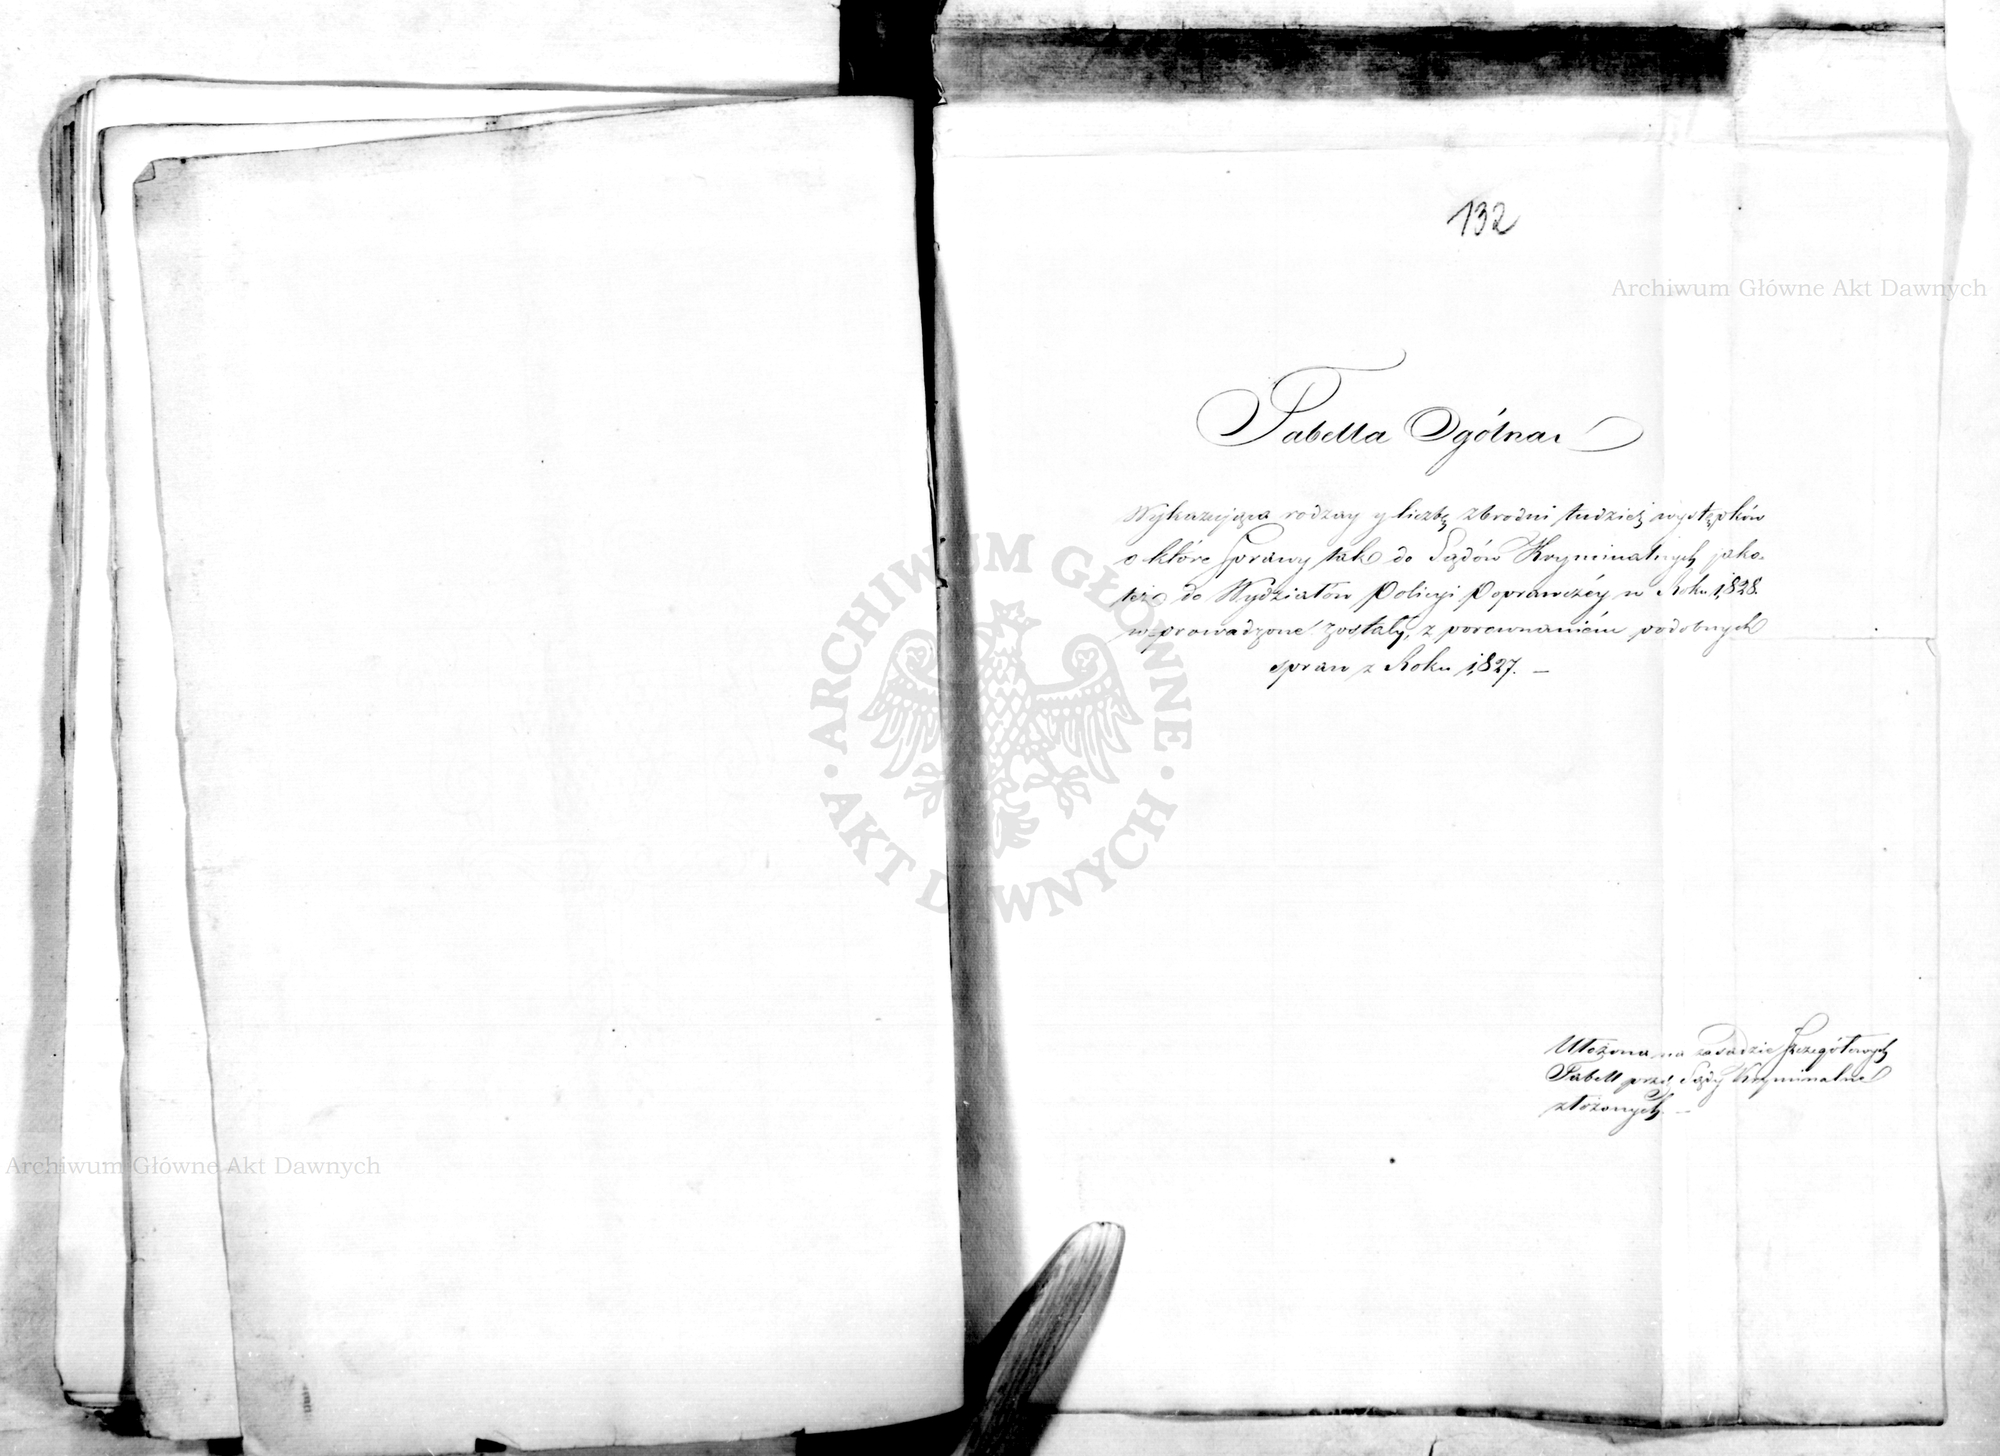 132
Archiwum Główne Akt Dawnych
Tabella Ogólna
Wykazująca rodzay y liczbę zbrodni tudzież występków
o które Sprawy tak do Sądów Kryminalnych jako-
też do Wydziałów Policyi Poprawczéy w Roku 1828.
wprowadzone zostały, z porównaniem podobnych
spraw z Roku 1827. –
ARCHIWUM GŁÓWNE
AKT DAWNYCH
Ułożona na zasadzie szczegółowych
Tabell przez Sądy Kryminalne
złożonych. –
Archiwum Główne Akt Dawnych